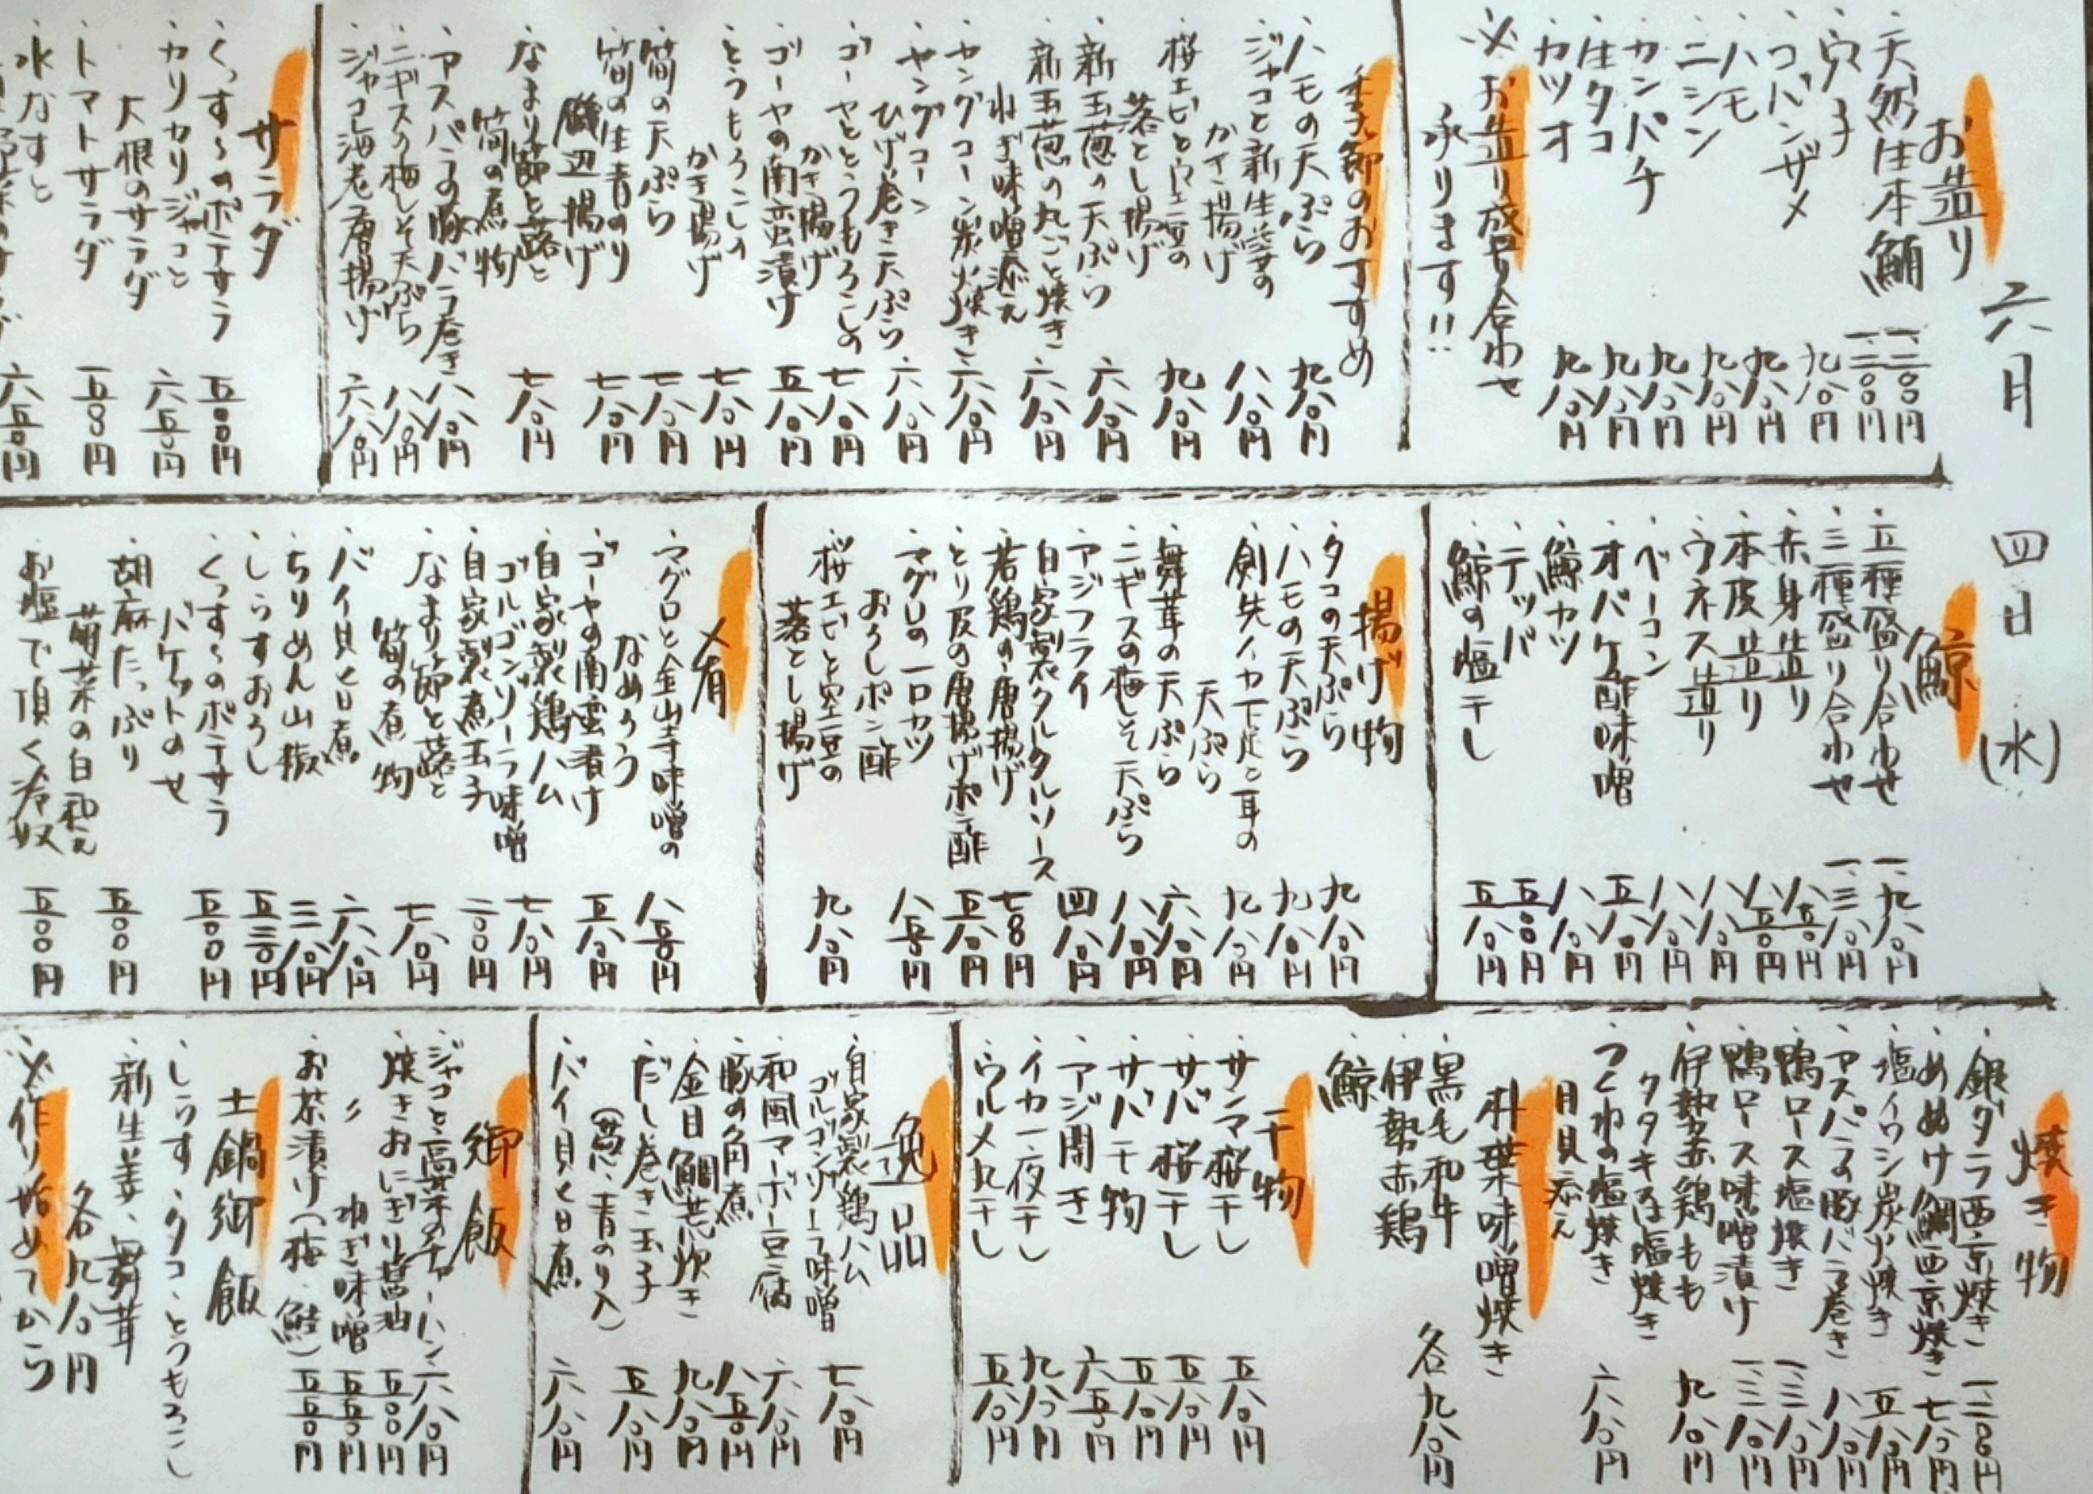 六月 四日(水)
お造り
・天然生本鮪 一、二〇〇円 一、三〇〇円
・穴子 九八〇円
・コバンザメ 九八〇円
・ハモ 九八〇円
・ニシン
・カンパチ 九八〇円
・生タコ 九八〇円
・カツオ 九八〇円
※お造り盛り合わせ
承ります!!
季節のおすすめ
・ハモの天ぷら 九八〇円
・ジャコと新生姜の
かき揚げ 八八〇円
・桜エビと空豆の
落とし揚げ 九八〇円
・新玉葱の天ぷら 六八〇円
・新玉葱の丸ごと焼き
ねぎ味噌添え 六八〇円
・ヤングコーン炭火焼き 六八〇円
・ヤングコーン
ひげ巻き天ぷら 六八〇円
・ゴーヤととうもろこしの
かき揚げ 七八〇円
・ゴーヤの南蛮漬け 五八〇円
・とうもろこしの
かき揚げ 七八〇円
・筍の天ぷら 七八〇円
・筍の生青のり
磯辺揚げ 七八〇円
・なまり節と蕗と
筍の煮物 七八〇円
・アスパラの豚バラ巻き 八八〇円
・ニギスの梅しそ天ぷら 八八〇円
・ジャコ海老唐揚げ 六八〇円
サラダ
・くっす〜のポテサラ 五〇〇円
・カリカリジャコと
大根のサラダ 六五〇円
・トマトサラダ 五〇〇円
・水なすと
六五〇円
鯨
・五種盛り合わせ 一、九八〇円
・三種盛り合わせ 一、三八〇円
・赤身造り 八五〇円
・本皮造り 八五〇円
・ウネス造り 八八〇円
・ベーコン 八八〇円
・オバケ酢味噌 五八〇円
・鯨カツ 八八〇円
・テッパ 五五〇円
・鯨の塩干し 五八〇円
揚げ物
・タコの天ぷら 九八〇円
・ハモの天ぷら 九八〇円
・剣先イカ下足と耳の
天ぷら 九八〇円
・舞茸の天ぷら 六八〇円
・ニギスの梅しそ天ぷら 八八〇円
・アジフライ
自家製タルタルソース 四八〇円
・若鶏の唐揚げ 七八〇円
・とり皮の唐揚げポン酢 五八〇円
・マグロの一口カツ
おろしポン酢 八五〇円
・桜エビと空豆の
落とし揚げ 九八〇円
肴
・マグロと金山寺味噌の
なめろう 八五〇円
・ゴーヤの南蛮漬け 五八〇円
・自家製鶏ハム
ゴルゴンゾーラ味噌 七八〇円
・自家製煮玉子 二〇〇円
・なまり節と蕗と
筍の煮物 七八〇円
・バイ貝旨煮 六八〇円
・ちりめん山椒 三八〇円
・しらすおろし 五三〇円
・くっす〜のポテサラ
バケットのせ 五〇〇円
・胡麻たっぷり
菊菜の白和え 五〇〇円
・お塩で頂く冷奴 五〇〇円
焼き物
・銀ダラ西京焼き 一、二〇〇円
・めぬけ鯛西京焼き 七八〇円
・塩イワシ炭火焼き 五八〇円
・アスパラの豚バラ巻き 八八〇円
・鴨ロース塩焼き 一、三八〇円
・鴨ロース味噌漬け 一、三八〇円
・伊勢赤鶏もも
タタキ又は塩焼き 九八〇円
・つくねの塩焼き
月見添え 六八〇円
朴葉味噌焼き
・黒毛和牛
・伊勢赤鶏
・鯨
各九八〇円
干物
・サンマ桜干し 五八〇円
・サバ桜干し 五八〇円
・サバ干物 五八〇円
・アジ開き 六五〇円
・イカ一夜干し 九八〇円
・ウルメ丸干し 五八〇円
逸品
・自家製鶏ハム
ゴルゴンゾーラ味噌 七八〇円
・和風マーボー豆腐 六八〇円
・豚の角煮 八五〇円
・金目鯛荒炊き 九八〇円
・だし巻き玉子
(葱、青のり入) 五八〇円
・バイ貝旨煮 六八〇円
御飯
・ジャコと高菜のチャーハン 六八〇円
・焼きおにぎり醤油 五〇〇円
〃 ねぎ味噌 五五〇円
・お茶漬け(梅・鮭) 五五〇円
土鍋御飯
・しらす・タコ・とうもろこし
・新生姜・舞茸
各九八〇円
※作り始めてから